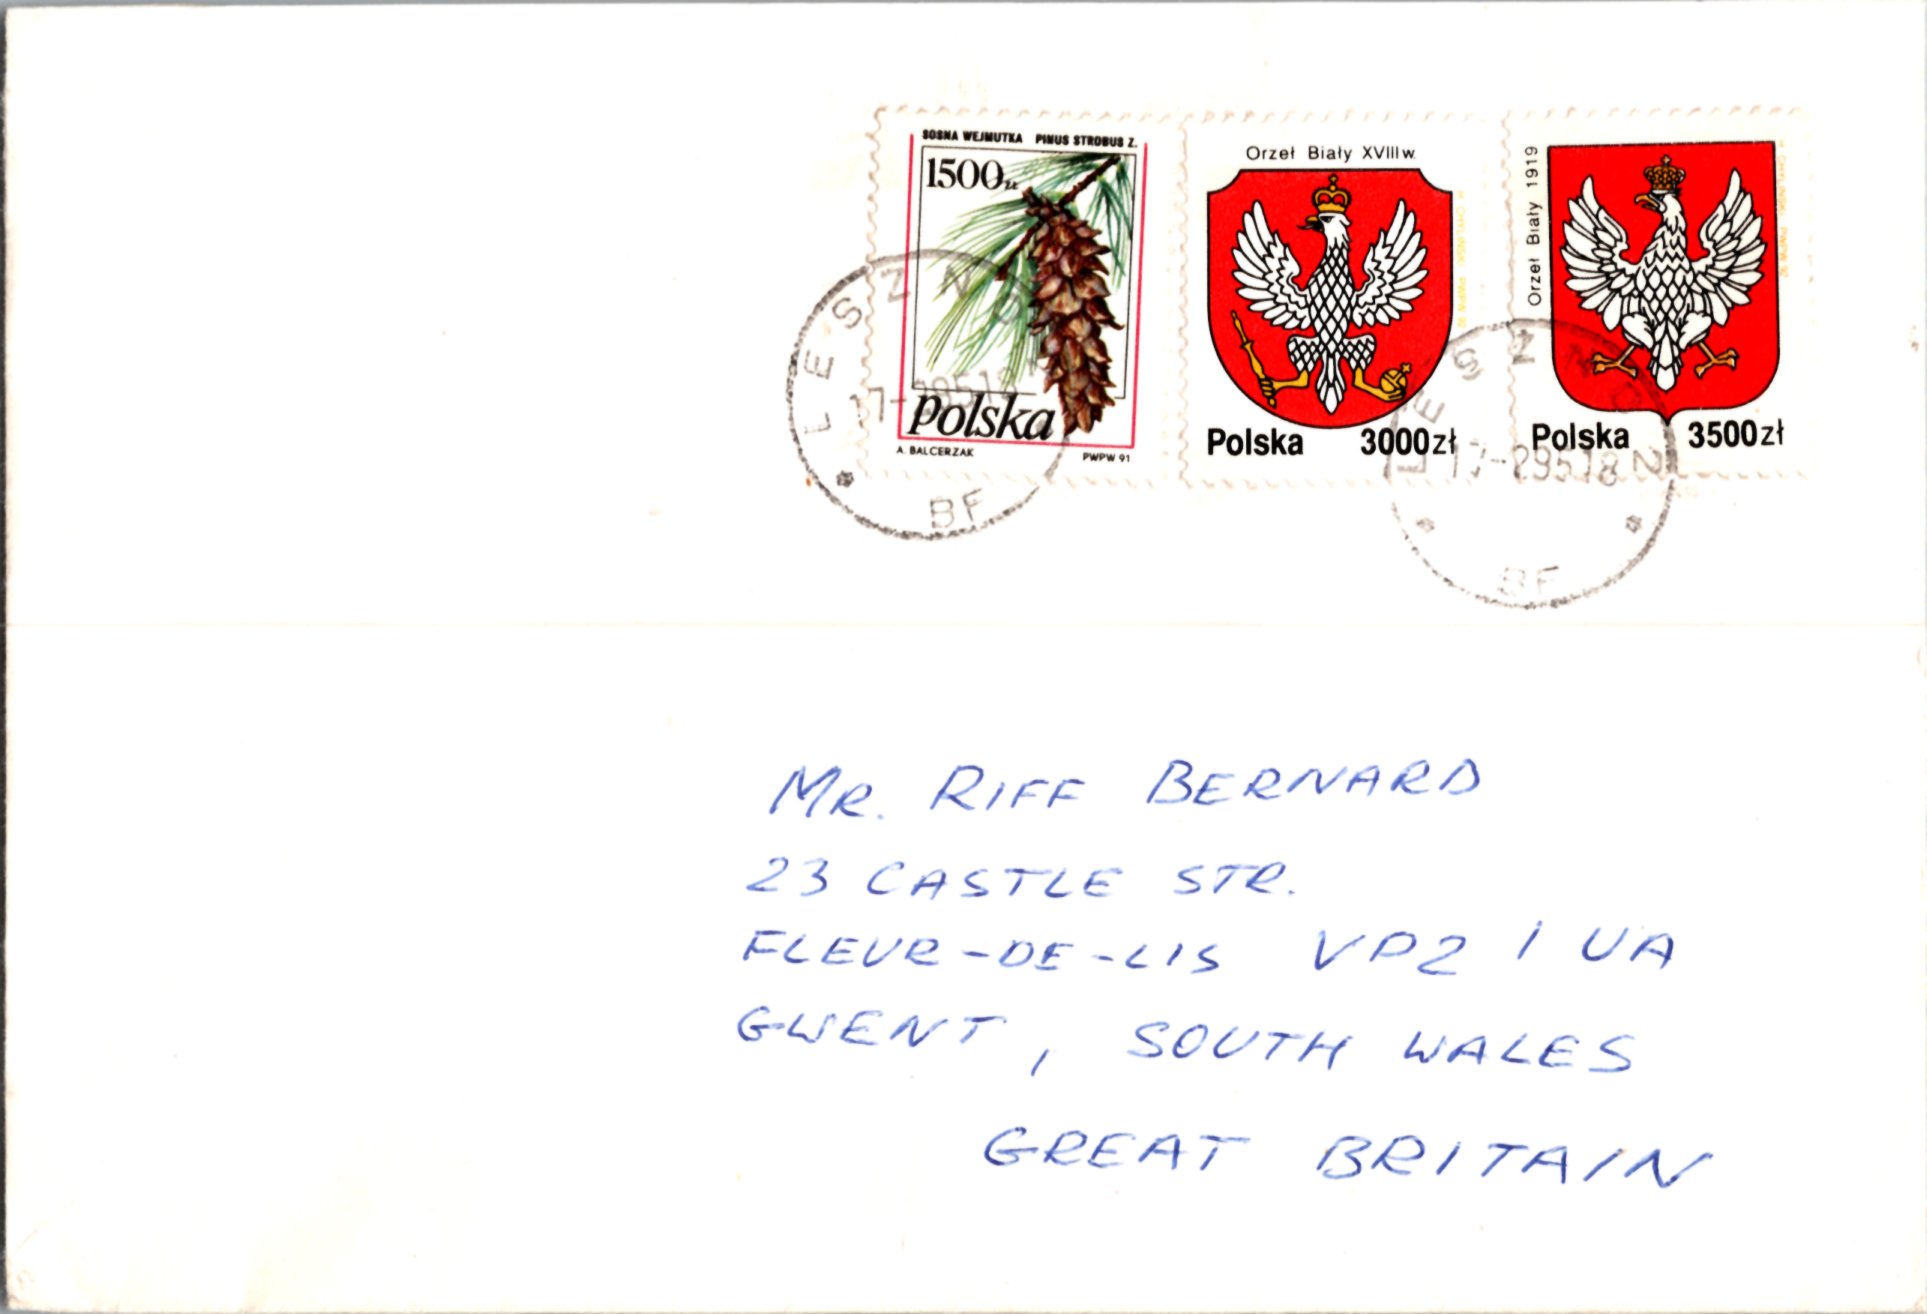 SOSNA WEJMUTKA PINUS STROBUS Z.
1500zł
polska
A. BALCERZAK
PWPW 91
Orzeł Biały XVIII w.
H. CHYLIŃSKI PWPW 92
Polska 3000zł
Orzeł Biały 1919
H. CHYLIŃSKI PWPW 92
Polska 3500zł
LESZNO
17-29518
BF
LESZNO 2
17-29518
BF
MR. RIFF BERNARD
23 CASTLE STR.
FLEUR-DE-LIS VP2 1UA
GWENT, SOUTH WALES
GREAT BRITAIN